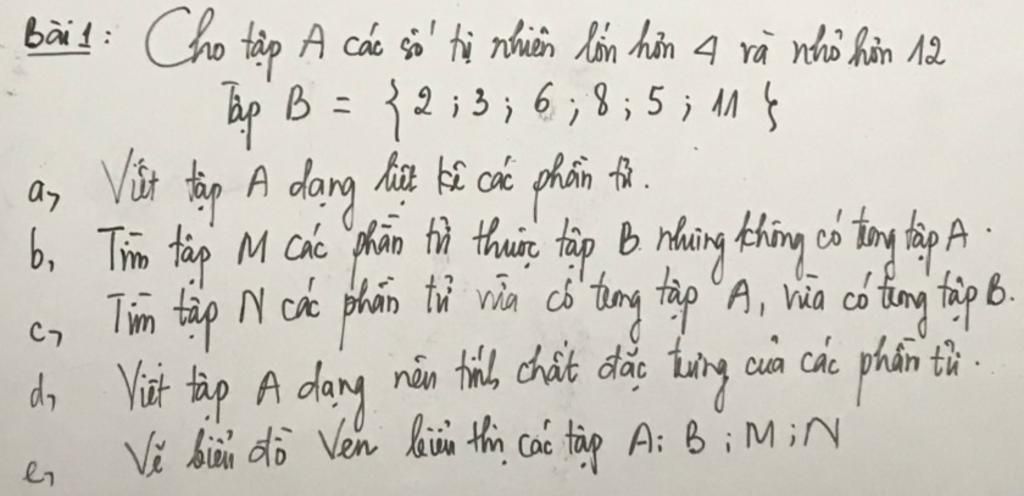 Bài 1: Cho tập A các số tự nhiên lớn hơn 4 và nhỏ hơn 12
Tập B = { 2 ; 3 ; 6 ; 8 ; 5 ; 11 }
a, Viết tập A dạng liệt kê các phần tử.
b, Tìm tập M các phần tử thuộc tập B nhưng không có trong tập A.
c, Tìm tập N các phần tử vừa có trong tập A, vừa có trong tập B.
d, Viết tập A dạng nêu tính chất đặc trưng của các phần tử.
e, Vẽ biểu đồ Ven biểu thị các tập A; B ; M ; N